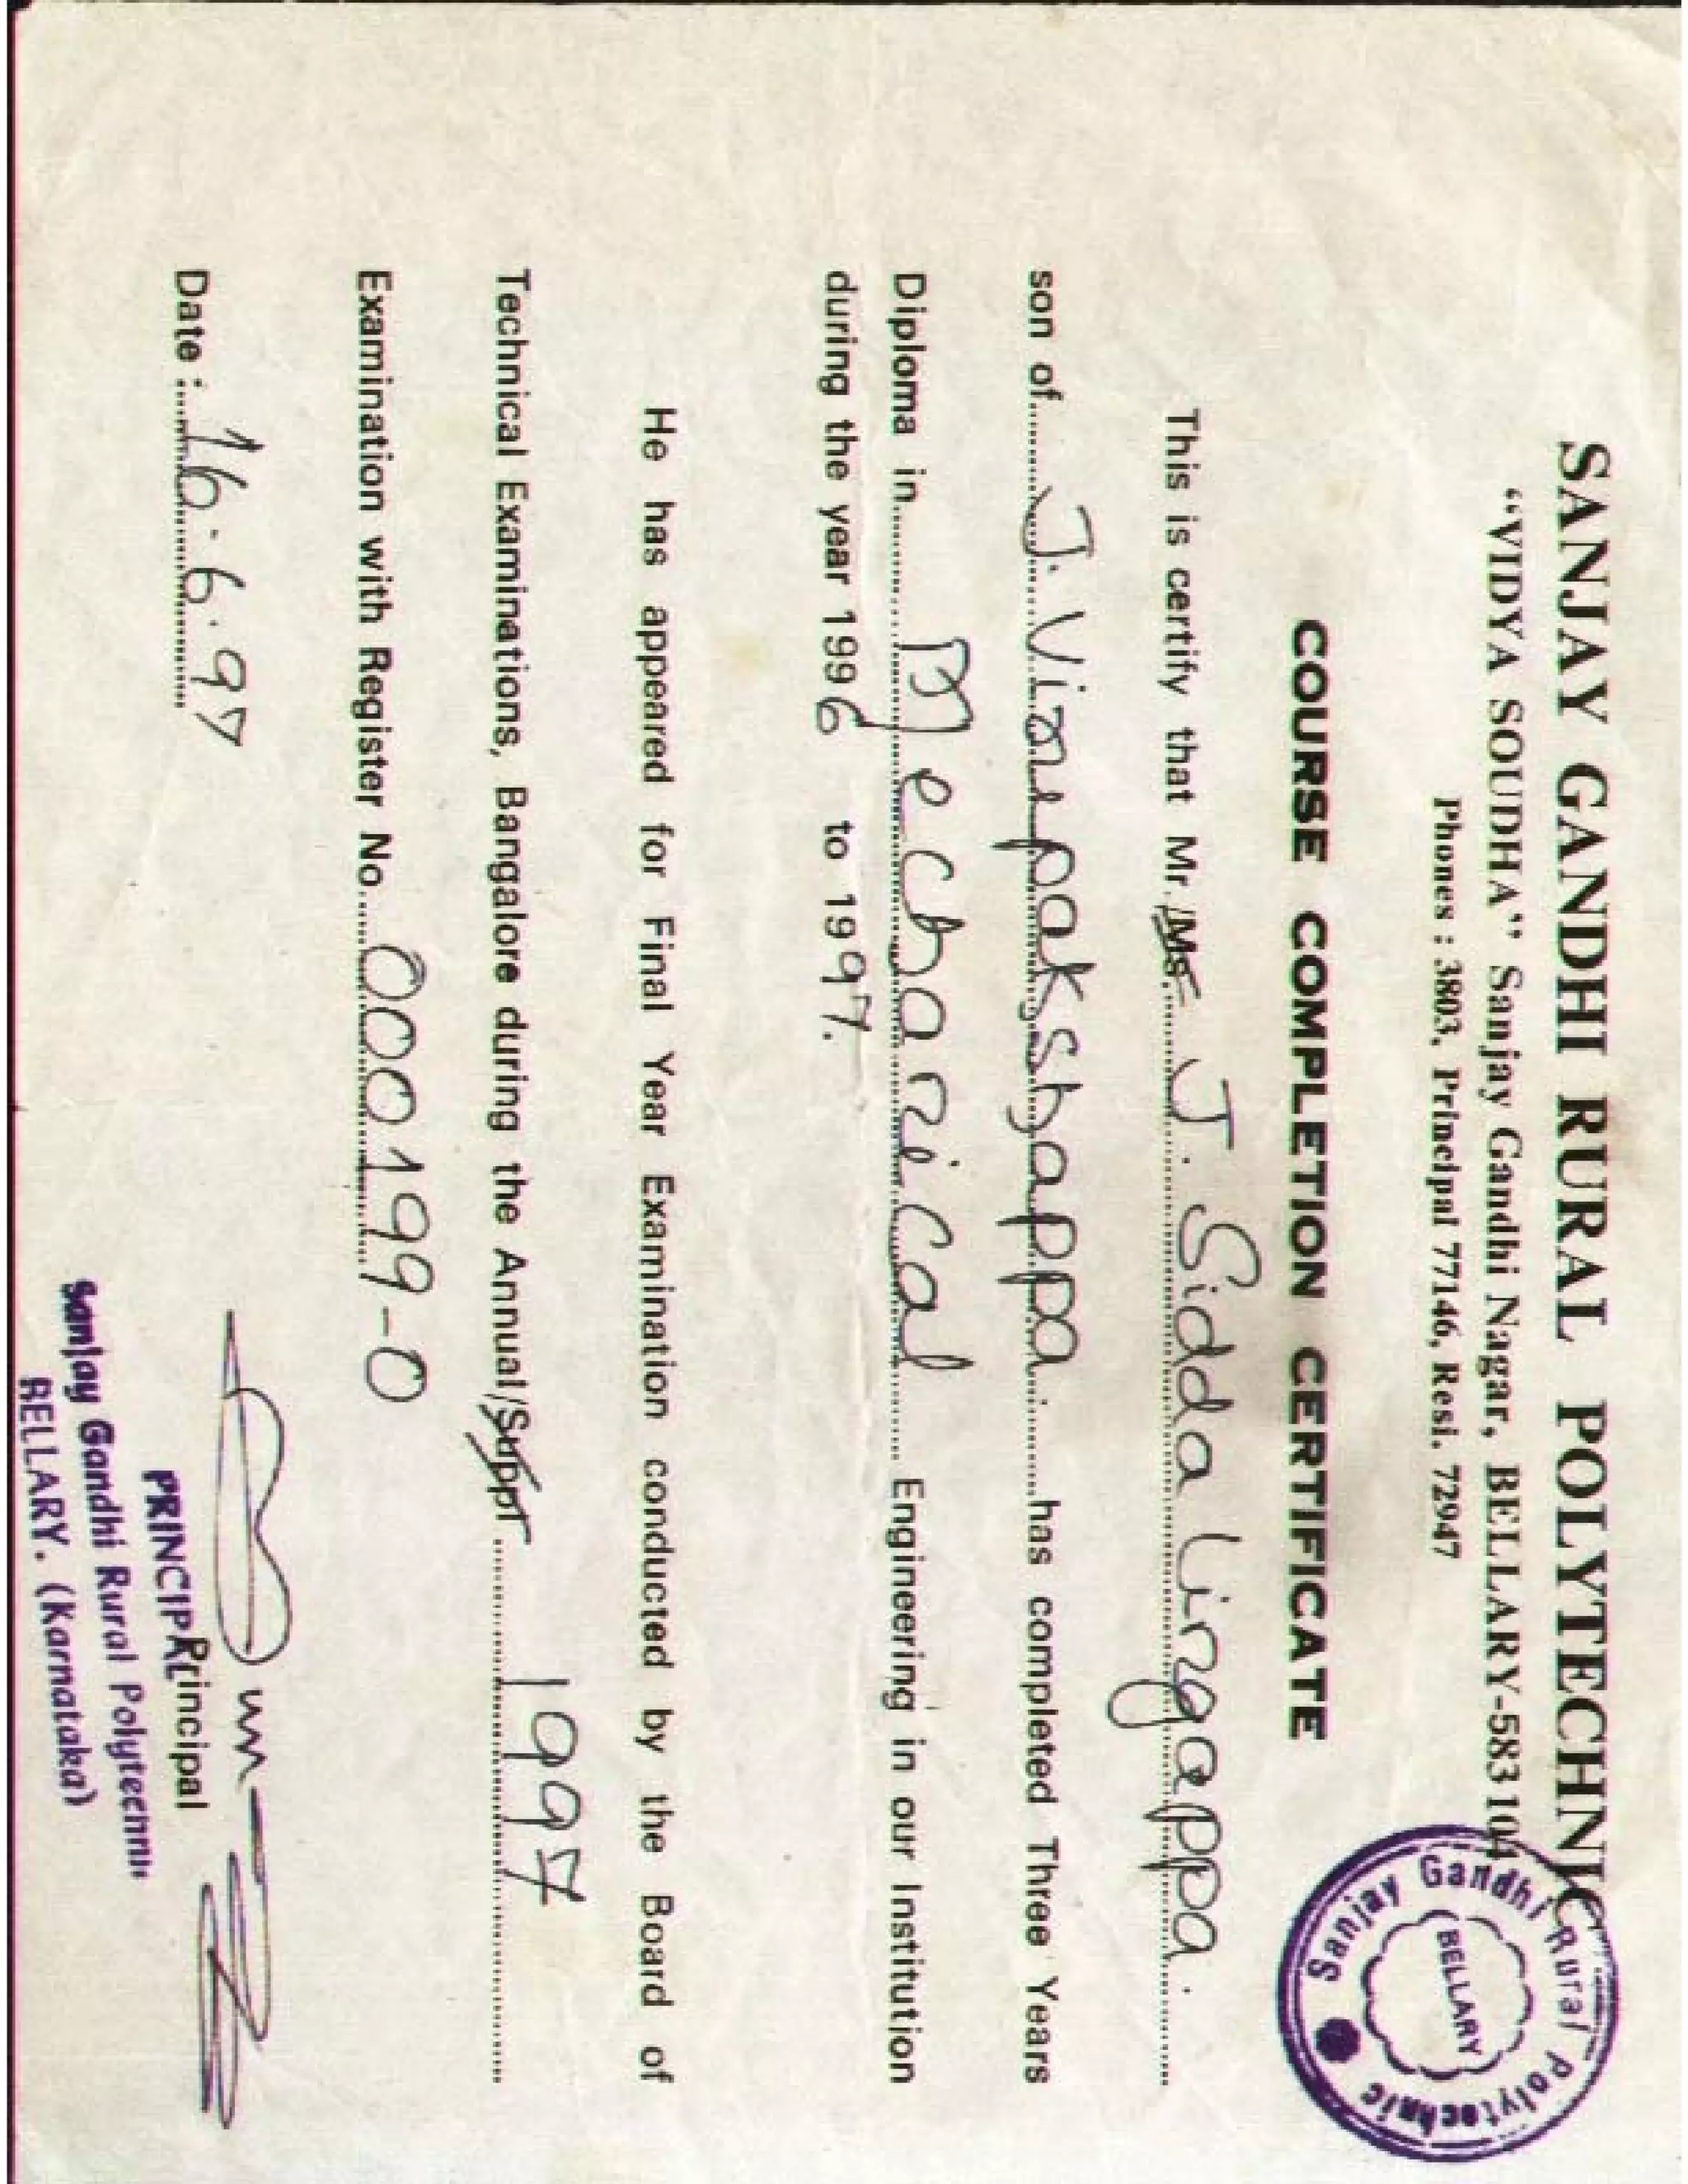 SANJAY GANDHI RURAL POLYTECHNIC
“VIDYA SOUDHA” Sanjay Gandhi Nagar, BELLARY-583 104
Phones : 3803, Principal 77146, Resi. 72947
Sanjay Gandhi Rural Polytechnic
BELLARY
COURSE COMPLETION CERTIFICATE
This is certify that Mr./Ms. J. Sidda Lingappa.
son of J. Virupakshappa has completed Three Years
Diploma in Mechanical Engineering in our Institution
during the year 1996 to 1997.
He has appeared for Final Year Examination conducted by the Board of
Technical Examinations, Bangalore during the Annual/Suppl 1997
Examination with Register No. 000199-0
Date : 16.6.97
Principal
PRINCIPAL
Sanjay Gandhi Rural Polytechnic
BELLARY. (Karnataka)